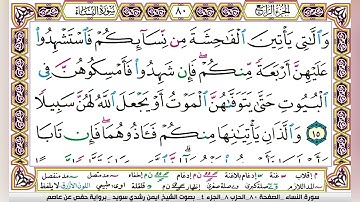 سُورَةُ النِّسَاءِ ٨٠ الجُزْءُ الرَّابِعُ
وَالَّٰتِي يَأْتِينَ الْفَٰحِشَةَ مِن نِّسَآئِكُمْ فَاسْتَشْهِدُوا۟
عَلَيْهِنَّ أَرْبَعَةً مِّنكُمْ ۖ فَإِن شَهِدُوا۟ فَأَمْسِكُوهُنَّ فِى
الْبُيُوتِ حَتَّىٰ يَتَوَفَّىٰهُنَّ الْمَوْتُ أَوْ يَجْعَلَ اللَّهُ لَهُنَّ سَبِيلًا
١٥ وَالَّذَانِ يَأْتِيَٰنِهَا مِنكُمْ فَـَٔاذُوهُمَا ۖ فَإِن تَابَا
سورة النساء . الصفحة ٨٠ . الحزب ٨ . الجزء ٤ . بصوت الشيخ أيمن رشدي سويد . برواية حفص عن عاصم